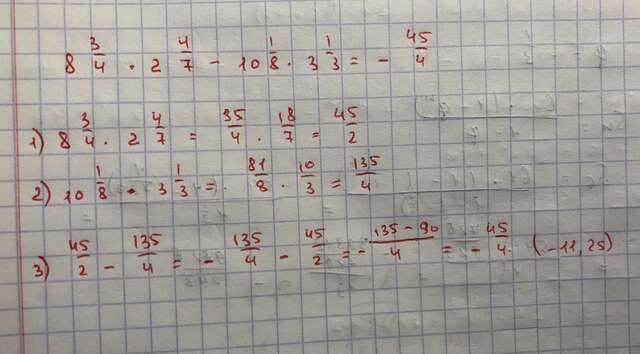 8 3/4 · 2 4/7 - 10 1/8 · 3 1/3 = - 45/4
1) 8 3/4 · 2 4/7 = 35/4 · 18/7 = 45/2
2) 10 1/8 · 3 1/3 = 81/8 · 10/3 = 135/4
3) 45/2 - 135/4 = - 135/4 - 45/2 = - 135-90/4 = - 45/4. (-11,25)